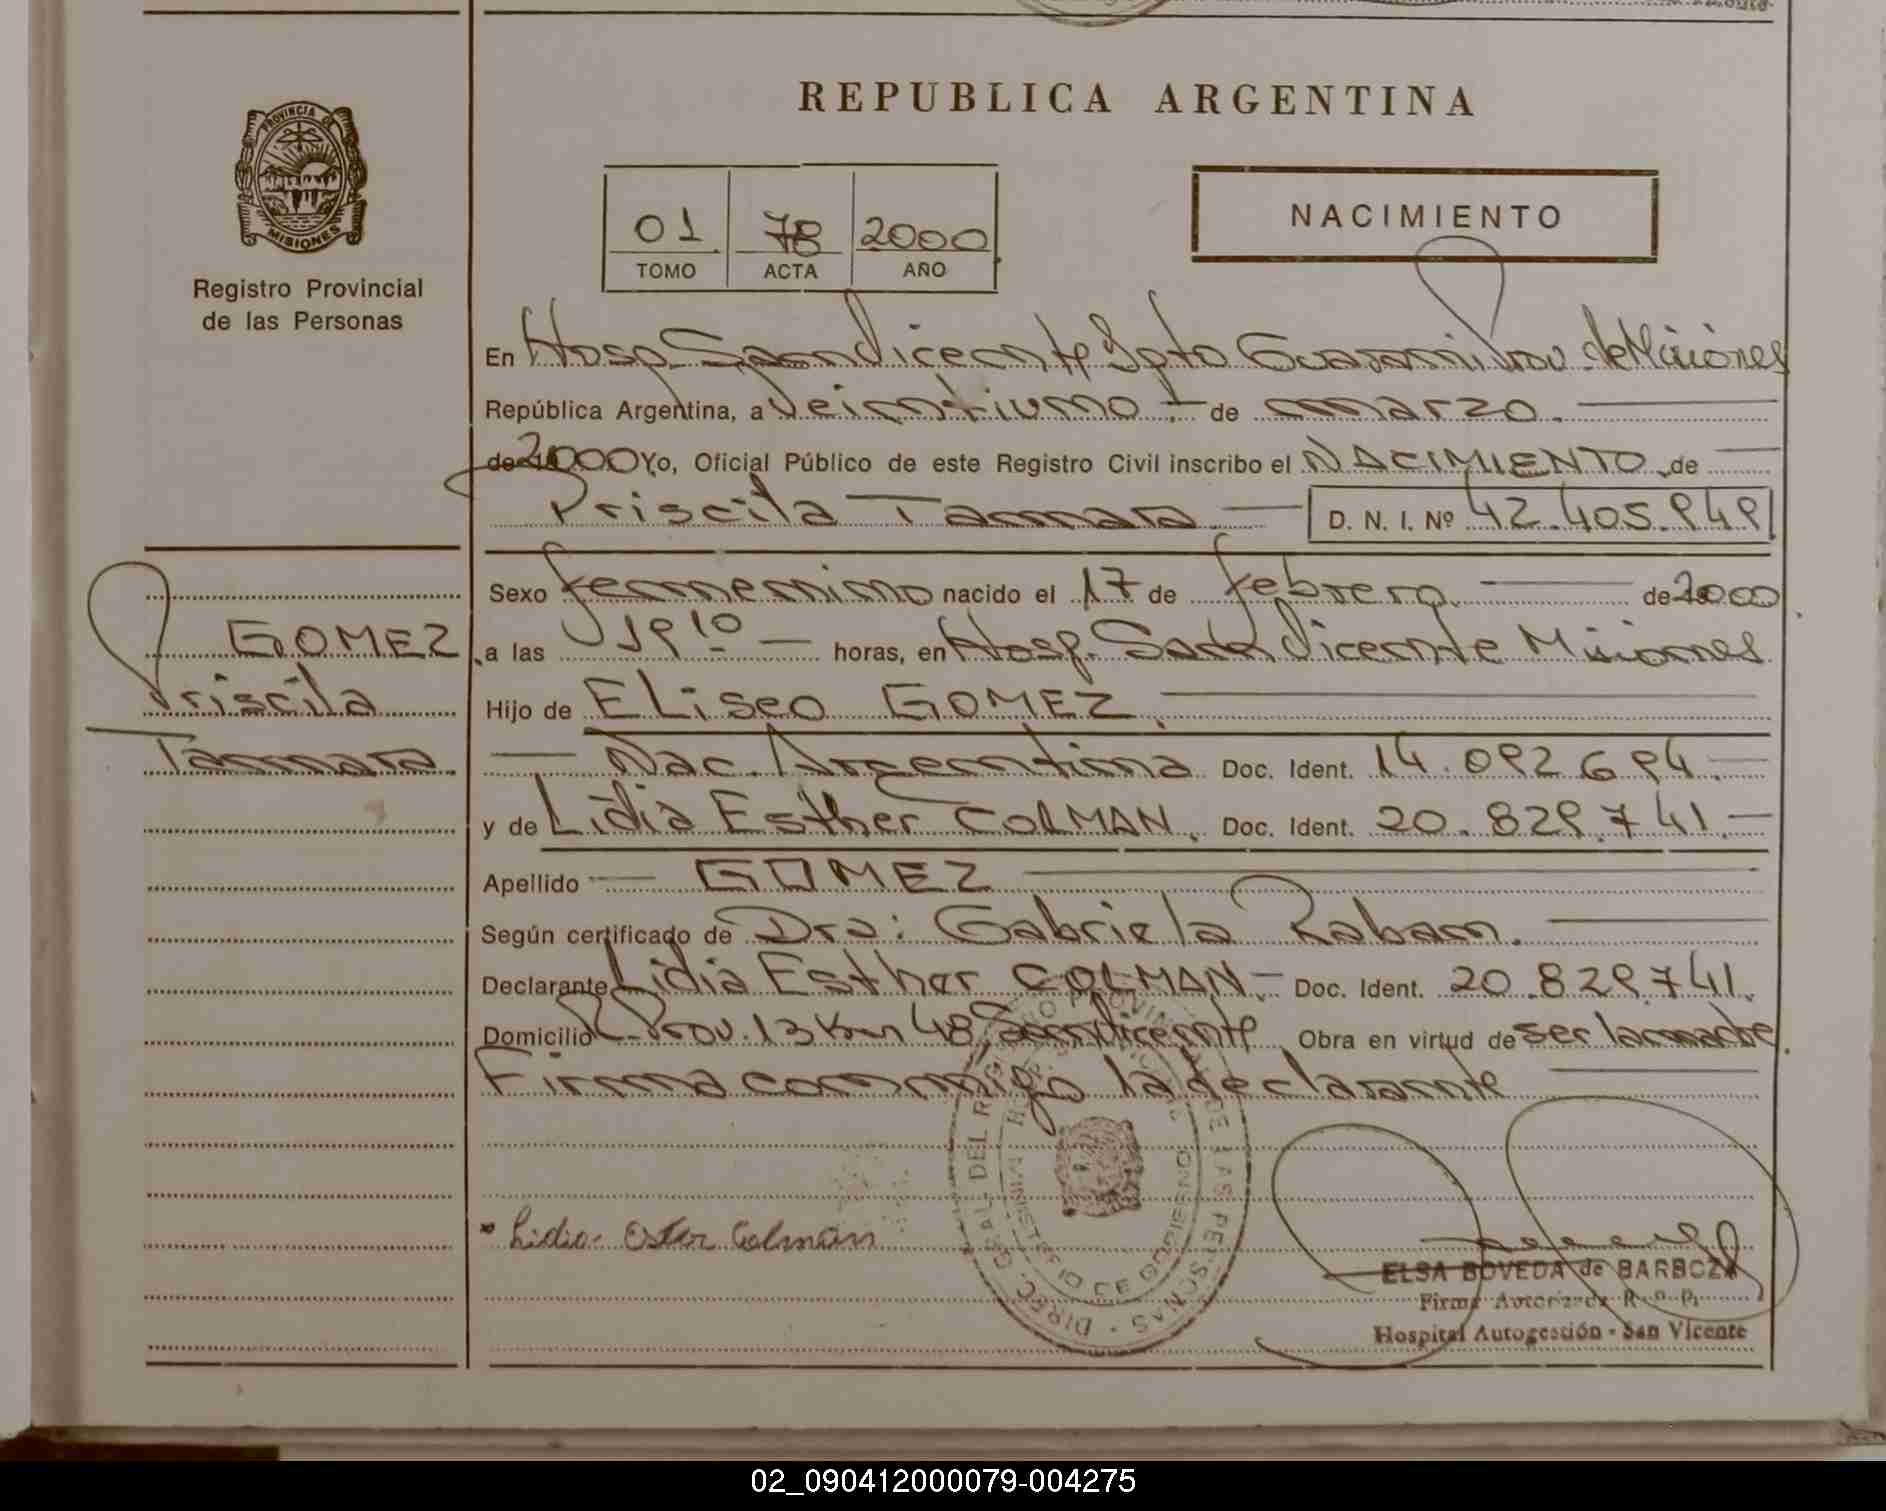 REPUBLICA ARGENTINA
PROVINCIA DE
MISIONES
Registro Provincial
de las Personas
01 78 2000
TOMO ACTA AÑO
NACIMIENTO
En Hosp. San Vicente Dpto Guarani Prov. de Misiones
República Argentina, a Veintiuno de marzo.
de 2000 Yo, Oficial Público de este Registro Civil inscribo el NACIMIENTO de
Priscila Tamara D. N. I. Nº 42.405.949
Sexo femenino nacido el 17 de febrero de 2000
GOMEZ
a las 19 10 horas, en Hosp. San Vicente Misiones
Priscila
Hijo de ELiseo GOMEZ.
Tamara
Nac. Argentina Doc. Ident. 14.092.694.
y de Lidia Esther COLMAN. Doc. Ident. 20.829.741.
Apellido GOMEZ
Según certificado de Dra: Gabriela Raban.
Declarante Lidia Esther COLMAN. Doc. Ident. 20.829.741.
Domicilio R. Prov. 13 Km 48 San Vicente Obra en virtud de ser la madre
Firma conmigo la declarante
DIREC. GRAL. DEL REGISTRO PROVINCIAL DE LAS PERSONAS
MINISTERIO DE GOBIERNO
Lidia Ester Colman
ELSA BOVEDA de BARBOZA
Firma Autorizada R. P.
Hospital Autogestión - San Vicente
02_090412000079-004275